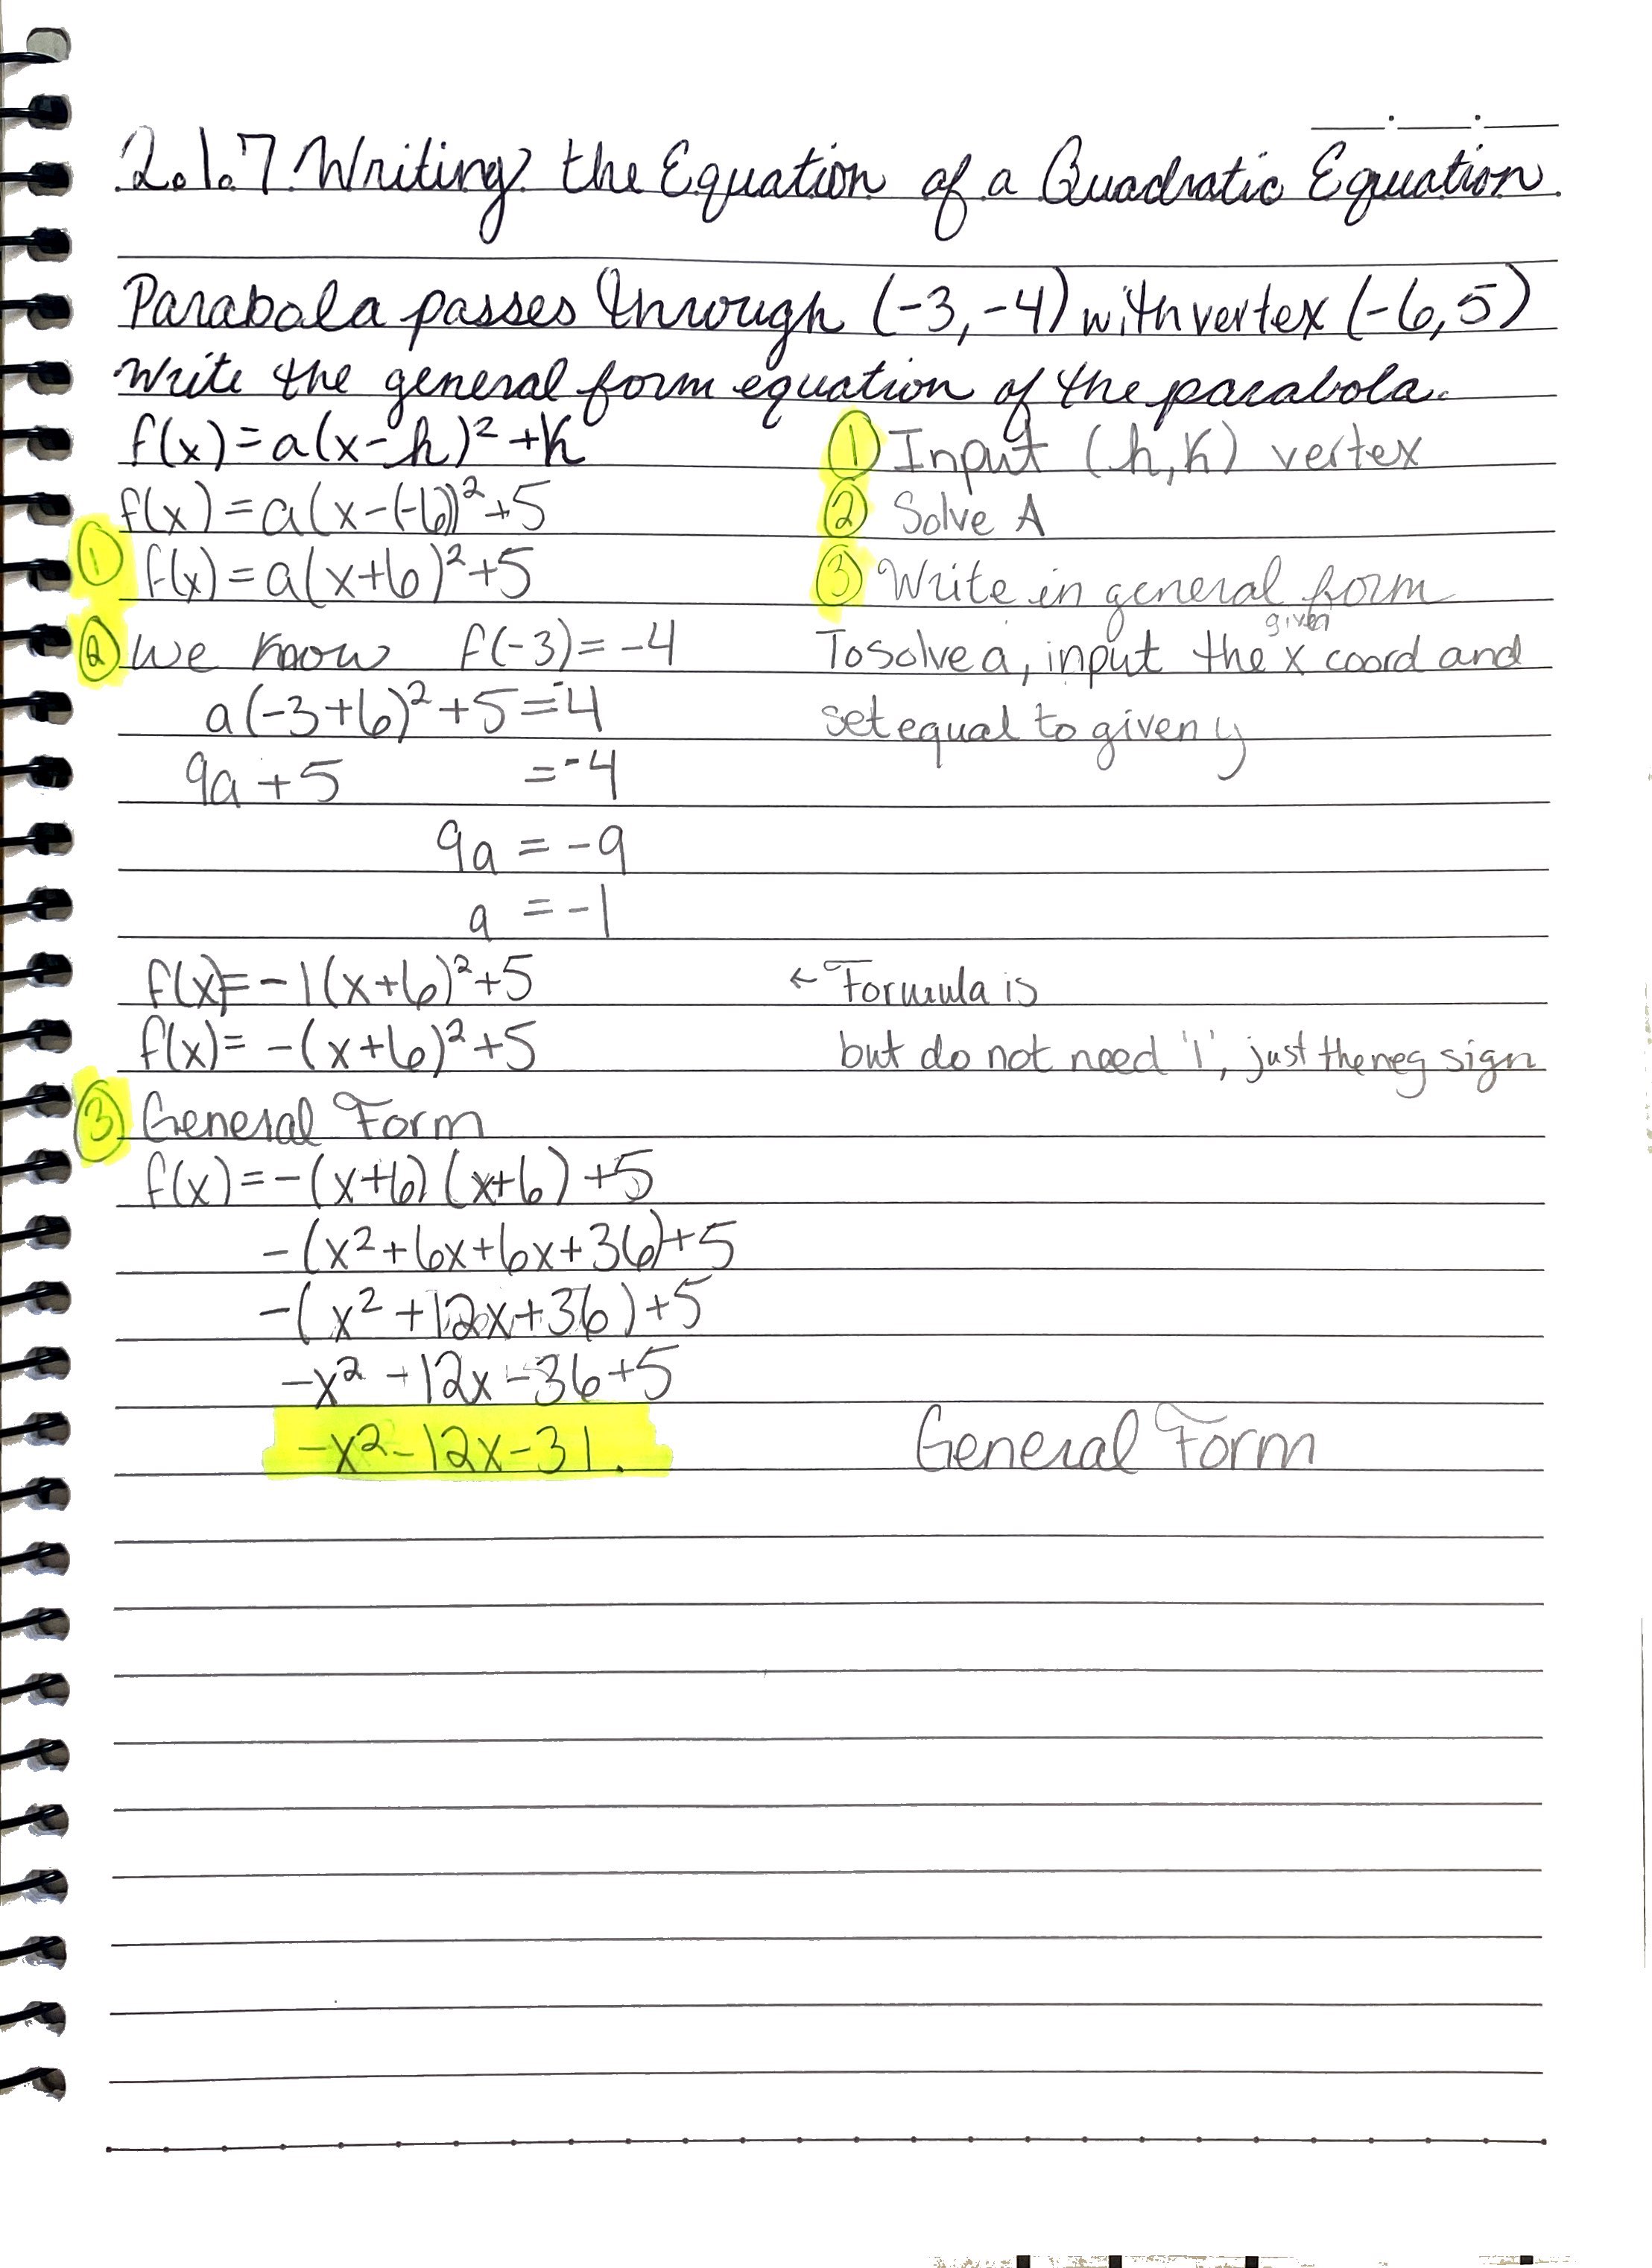 2.1.7 Writing the Equation of a Quadratic Equation.
Parabola passes through (-3,-4) with vertex (-6,5)
Write the general form equation of the parabola.
f(x)=a(x-h)²+k
① Input (h,k) vertex
f(x)=a(x-(-6))²+5
② Solve A
① f(x)=a(x+6)²+5
③ Write in general form
② We know f(-3)=-4
To solve a, input the given x coord and
a(-3+6)²+5=-4
set equal to given y
9a+5 =-4
9a = -9
a = -1
f(x)=-1(x+6)²+5
← Formula is
f(x)= -(x+6)²+5
but do not need '1', just the neg sign
③ General Form
f(x)=-(x+6)(x+6)+5
-(x²+6x+6x+36)+5
-(x²+12x+36)+5
-x²-12x-36+5
-x²-12x-31.
General Form